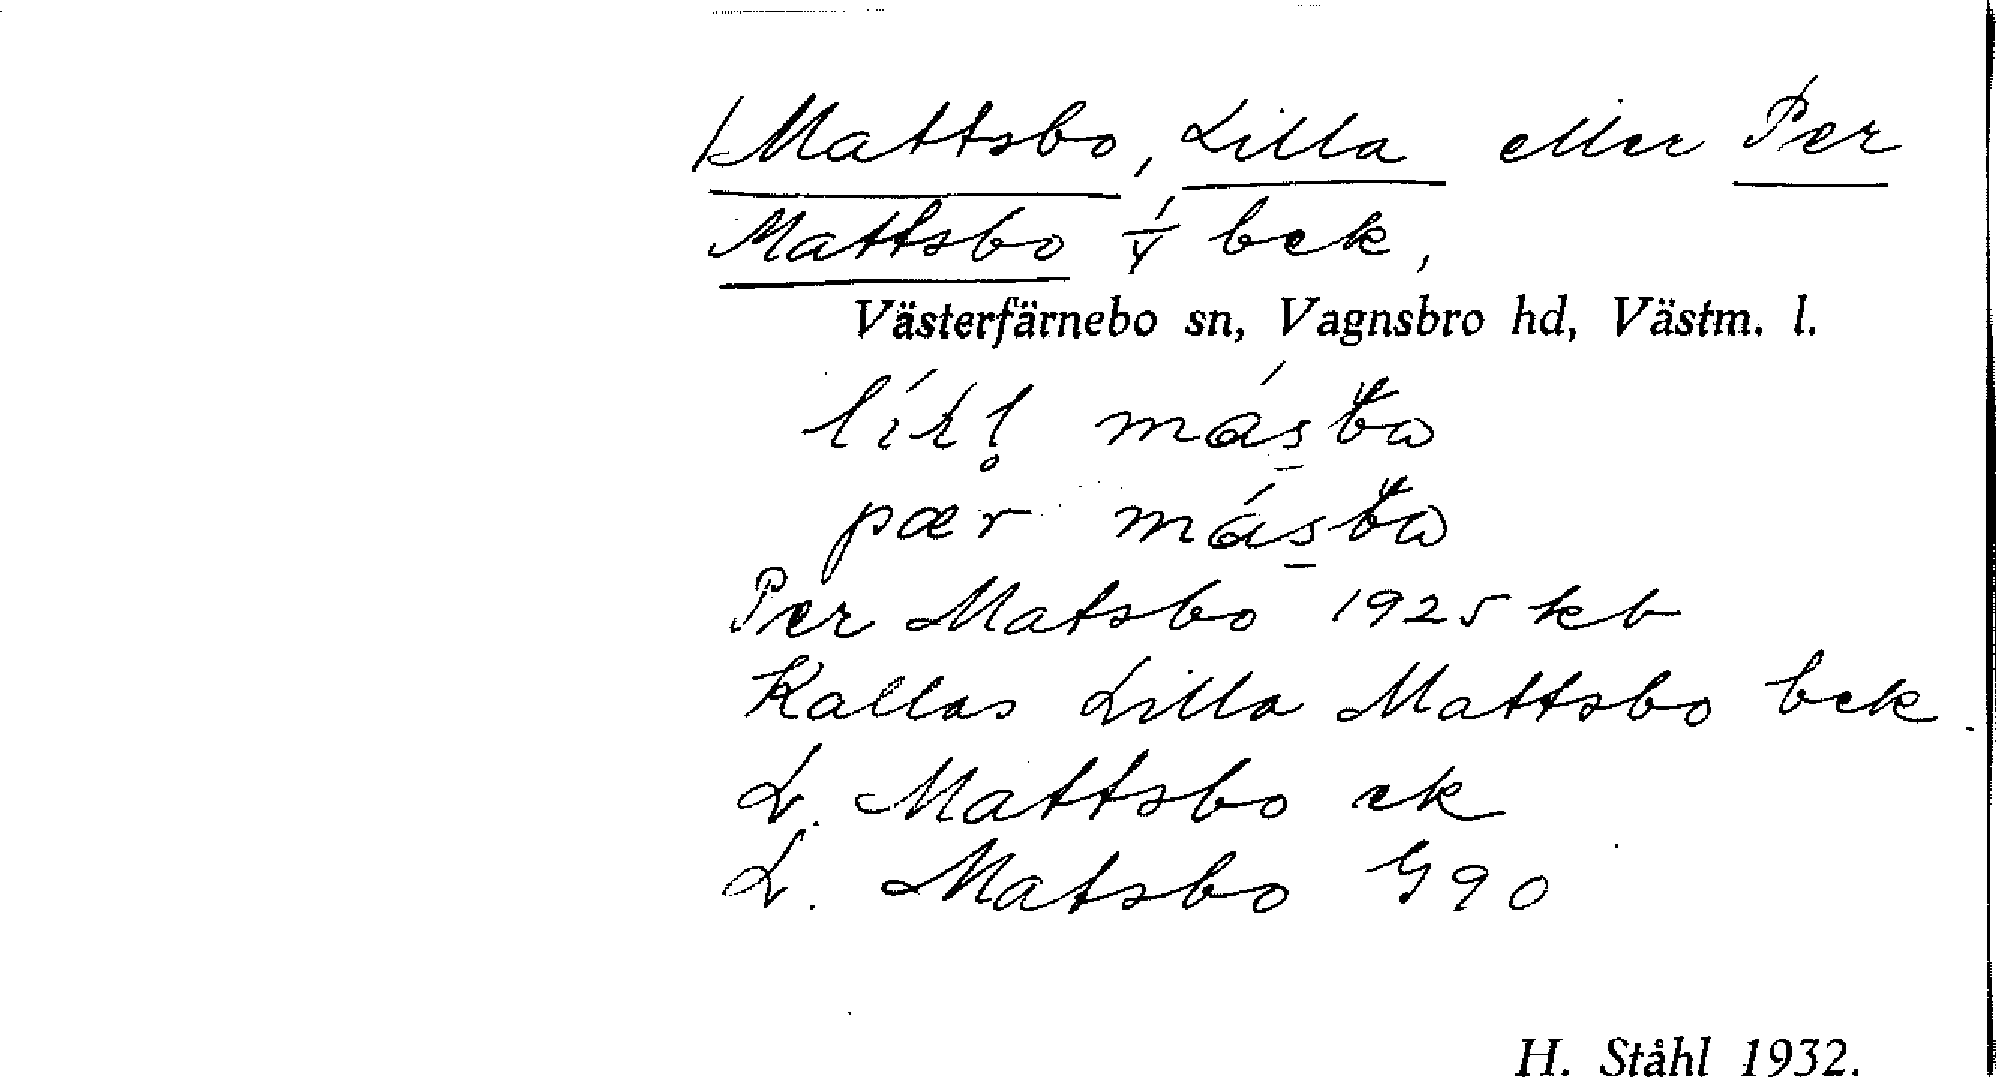 Mattsbo, Lilla eller Per
Mattsbo bek,
Västerfärnebo sn, Vagnsbro hd, Västm. l.
pær
Per Matsbo 1925 kb
Kallas Lilla Mattsbo bek
L. Mattsbo ek
L. Matsbo G90
H. Ståhl 1932.